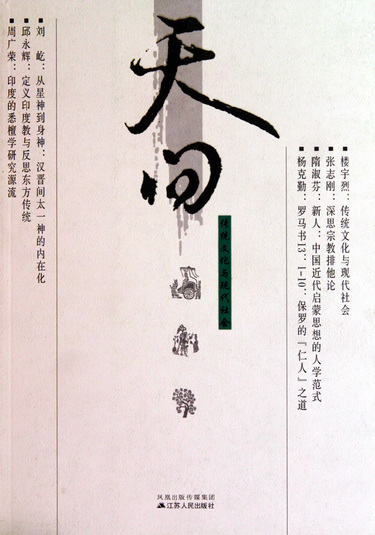 天问
传统文化与现代社会
楼宇烈：传统文化与现代社会
张志刚：深思宗教排他论
隋淑芬：新人：中国近代启蒙思想的人学范式
杨克勤：罗马书13：1-10：保罗的『仁人』之道
刘 屹：从星神到身神：汉晋间太一神的内在化
邱永辉：定义印度教与反思东方传统
周广荣：印度的悉檀学研究源流
凤凰出版传媒集团
江苏人民出版社